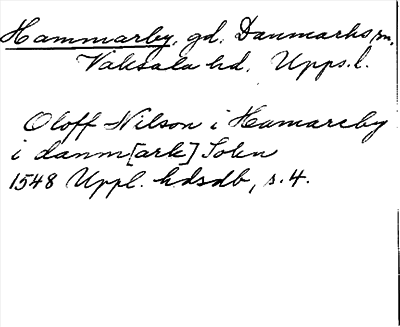 Hammarby, gd. Danmarks sn,
Vaksala hd. Upps.l.
Oloff Nilson i Hamareby
i danm[ark] Sokn
1548 Uppl. hdsdb, s. 4.